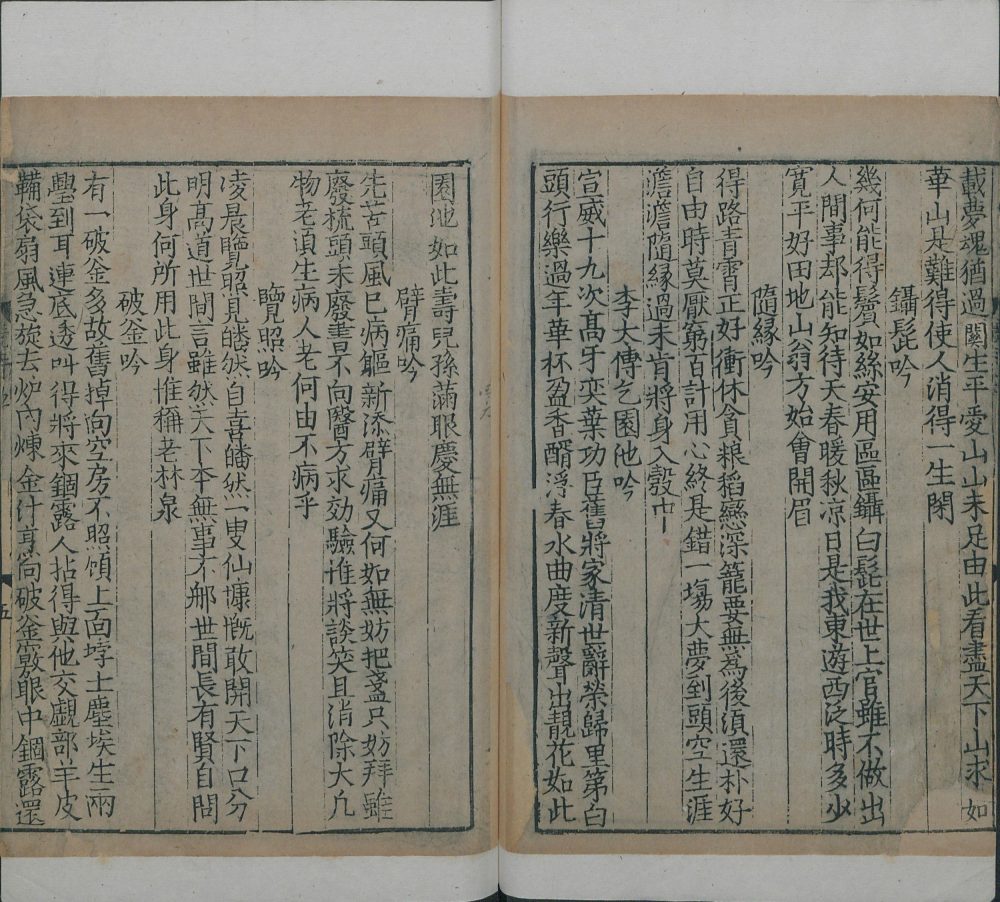 載夢魂猶過關生平愛山山未足由此看盡天下山求如
華山是難得使人消得一生閑
鑷髭吟
幾何能得鬢如絲安用區區鑷白髭在世上官雖不做出
人間事却能知待天春暖秋凉日是我東遊西泛時多少
寬平好田地山翁方始會開眉
隨緣吟
得路青霄正好衝休貪粮稻戀深籠要無爲後湏還朴好
自由時莫厭窮百計用心終是錯一塲大夢到頭空生涯
澹澹隨緣過未肯將身入彀中
李大傅乞園池吟
宣威十九次髙牙奕葉功臣舊將家清世爵榮歸里第白
頭行樂過年華杯盈香醑浮春水曲度新聲出靚花如此
園池如此壽兒孫滿眼慶無涯
臂痛吟
先苦頭風已病軀新添臂痛又何如無妨把盞只妨拜雖
廢梳頭未廢書不向醫方求効驗惟將談笑且消除大凡
物老湏生病人老何由不病乎
覽照吟
凌晨覽照見皤然自喜皤然一叟仙慷慨敢開天下口分
明髙道世間言雖然天下本無事不那世間長有賢自問
此身何所用此身惟稱老林泉
破釡吟
有一破釡多故舊掉向空房不照顧上面垺土塵埃生兩
舋到耳連底透叫得將來錮露人拈得與他交覷部羊皮
鞴袋扇風急旋去炉内煉金汁
五